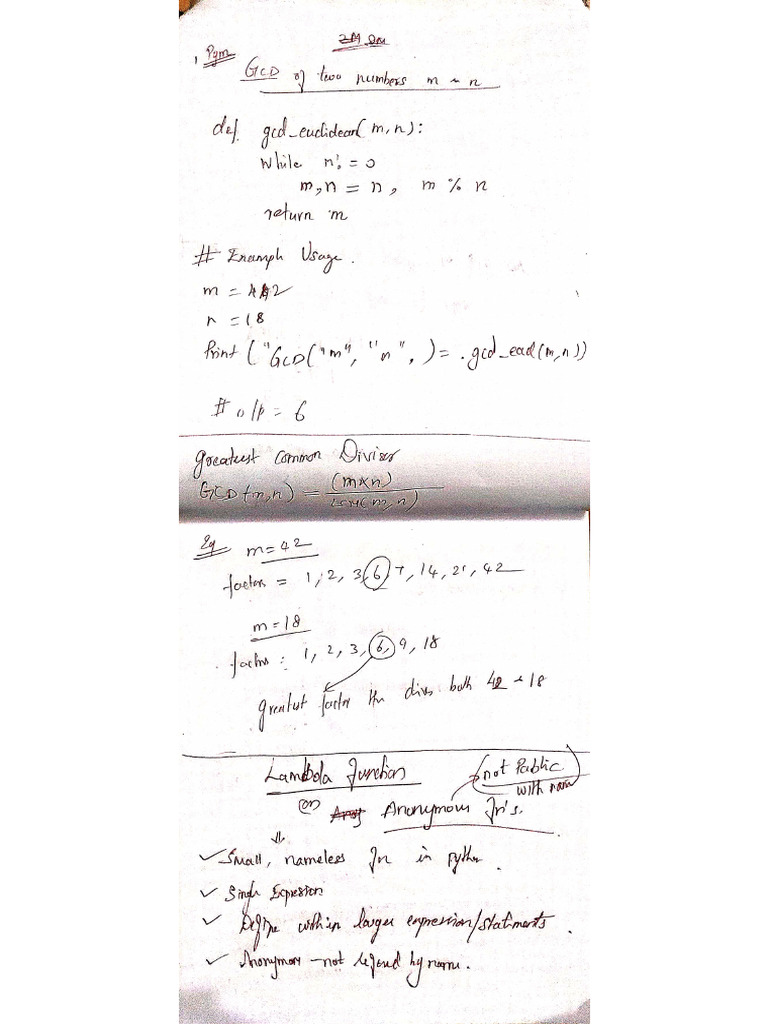 1 Pgm
GCD of two numbers m & n
def gcd_euclidean(m,n):
while n != 0
m,n = n, m % n
return m
# Example Usage.
m = 42
n = 18
Print ("GCD("m", "n", )= .gcd_eucd(m,n))
# o/p = 6
Greatest Common Divisor
GCD(m,n) = (m×n)
LCM(m,n)
Eg m=42
factors = 1, 2, 3, 6, 7, 14, 21, 42
m=18
factors: 1, 2, 3, 6, 9, 18
greatest factor the dives both 42 & 18
Lambda Function
(or) Anonymous Fn's.
(not Public
with name)
✓ Small, nameless Fn in python.
✓ Single Expression
✓ Define within larger expression/statments.
✓ Anonymous - not defined by name.